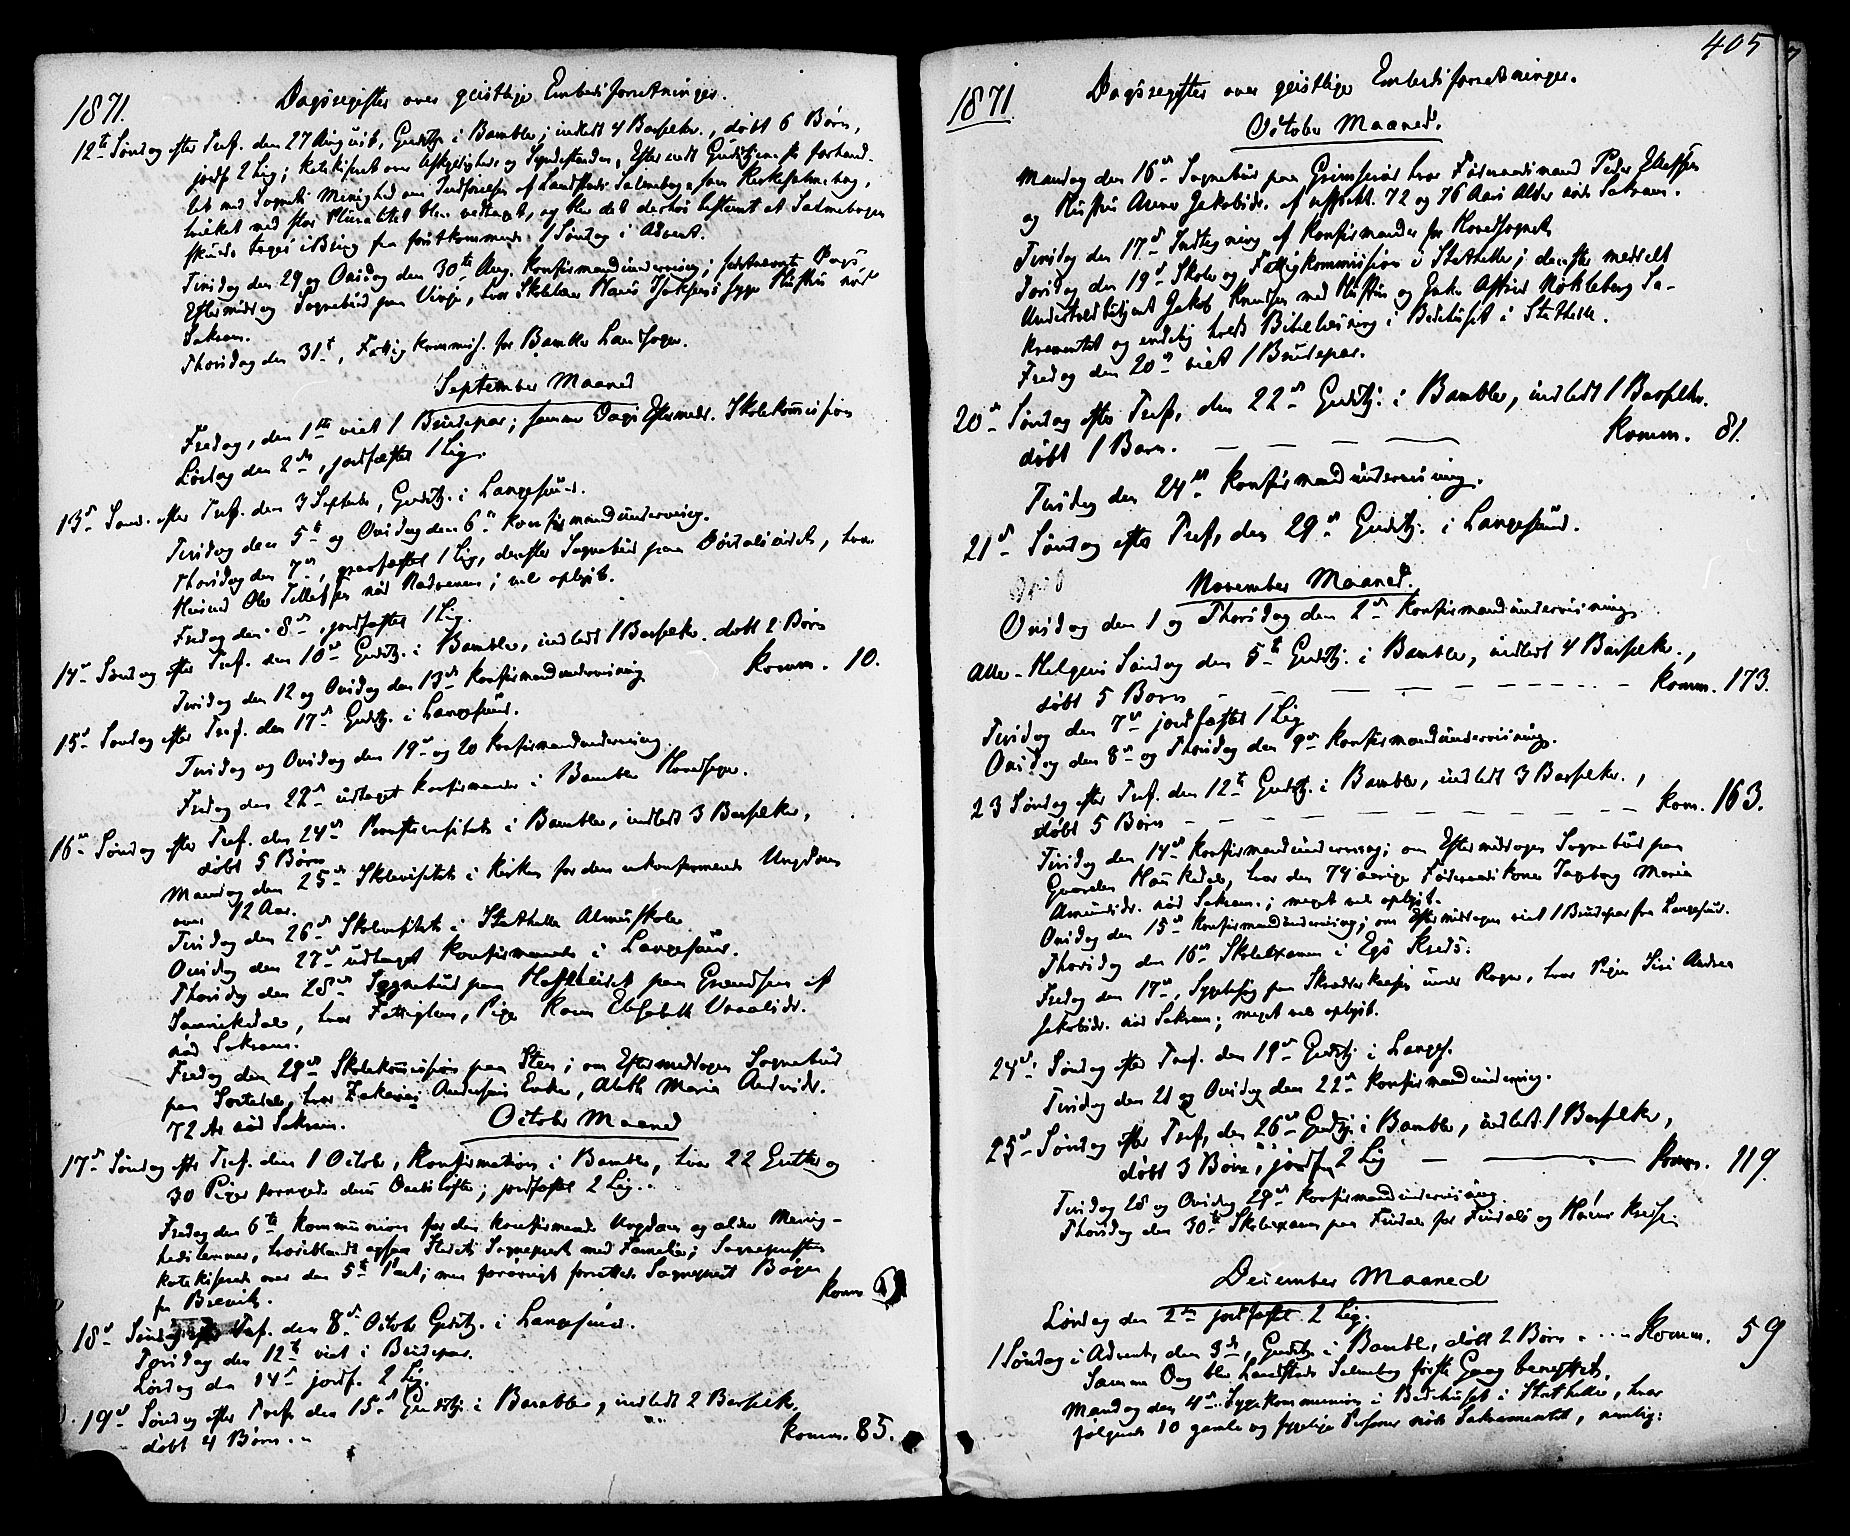 1871.
Dagsregister over geistlige Embedsforretninger.
12te Søndag efter Tref. den 27 August, Gudstj. i Bamble; indledt 4 Barselkr., døbt 6 Børn,
jordf. 2 Lig; katekiseret over og Syndefaldet, Efter endt Gudstjeneste forhand-
let med Sognets Menighed om Indførelsen af Landstads Salmebog som Kirkesalmebog,
hvilket med stor Pluralitet blev vedtaget, og blev det derhos bestemt at Salmebogen
skulde tages i Brug fra førstkommende 1 Søndag i Advent.
Tirsdag den 29 og Onsdag den 30te Aug. Konfirmandundervisning; sidstnævnte Dags
Eftermiddag Sognebud paa Vinje, hvor Skolelærer Hans syge Hustru nød
Sakram.
Thorsdag den 31t, Fattigkommis. for Bamble Landsogn.
September Maaned
Fredag, den 1ste viet 1 Brudepar; samme Dags Eftermidd. Skolekommission
Lørdag den 2den, jordfæstet 1 Lig.
13de Sønd. efter Tref. den 3 Septebr, Gudstj. i Langesund.
Tirsdag den 5te og Onsdag den 6te Konfirmandundervisng.
Thorsdag den 7de, jordfæstet 1 Lig, derefter Sognebud paa, hvor
Husmd Ole Tellefsen nød Nadveren; vel oplyst.
Fredag den 8de, jordfæstet 1 Lig.
14de Søndag efter Tref. den 10de Gudstj. i Bamble, indledt 1 Barselkr. døbt 2 Børn
Komm. 10.
Tirsdag den 12 og Onsdag den 13de Konfirmandundervisning
15de Søndag efter Tref. den 17de Gudstj. i Langesund.
Tirsdag og Onsdag den 19de og 20 Konfirmandundervisning.
Fredag den 22de udtaget Konfirmander i Bamble Hovedsogn.
16de Søndag efter Tref. den 24de Provstevisitats i Bamble, indledt 3 Barselkr,
døbt 5 Børn
Mandag den 25de Skolevisitats i Kirken for den ukonfirmerede Ungdom
over 12 Aar.
Tirsdag den 26de Skolevisitats i Stathelle Almuskole
Onsdag den 27de udtaget Konfirmander i Langesund.
Thorsdag den 28de Sognebud paa paa Grændsen af
Sannikedal, hvor Fattiglem, Pige Karen Elisabeth
nød Sakram.
Fredag den 29de Skolekommission paa Sten; om Eftermiddagen Sognebud
paa, hvor Zakarias Andersens Enke, Aleth Maria
72 Aar nød Sakram.
October Maaned
17de Søndag efter Tref. den 1 Octobr, Konfirmation i Bamble, hvor 22 Gutter og
30 Piger fornyede deres Daabsløfte; jordfæstet 2 Lig.
Fredag den 6te Kommunion for den konfirmerede Ungdom og ældre Menig-
hedslemmer, hvoriblandt ogsaa Stedets Sogneprest med Familie; Sognepresten
katekiserede over den 5te Part; men forøvrigt forrettede Sogneprest Bøgen
fra Brevik.
Komm.
18de Søndag efter Tref. den 8de October Gudstj. i Langesund.
Torsdag den 12te viet 1 Brudepar.
Lørdag den 14de jordf. 2 Lig.
19de Søndag efter Tref. den 15de Gudstj. i Bamble, indledt 2 Barselk,
døbt 4 Børn.
Komm. 85.
405
1871
Dagsregister over geistlige Embedsforretninger.
October Maaned.
Mandag den 16de Sognebud paa hvor Føderaadsmand Peder
og Hustru Jakobsdr. af respekt. 72 og 76 Aars Alder nøde Sakram.
Tirsdag den 17de Indtegning af Konfirmander for Hovedsognet
Torsdag den 19de Skole og Fattigkommission i Stathelle; derefter meddelt
Jakob Knudsen med Hustru og Enke Nøkleberg Sa-
kramentet og endelig holdt Bibellæsning i Bedehuset i Stathelle.
Fredag den 20de viet 1 Brudepar.
20de Søndag efter Tref, den 22de Gudstj. i Bamble, indledt 1 Barselkr.
døbt 1 Barn. — — — — Komm. 81.
Tirsdag den 24de Konfirmandundervisning.
21de Søndag efter Tref, den 29de Gudstj. i Langesund.
November Maaned.
Onsdag den 1 og Thorsdag den 2de Konfirmandundervisning
Alle-Helgens Søndag den 5te Gudstj. i Bamble, indledt 4 Barselkr.,
døbt 5 Børn — — — — — Komm. 173.
Tirsdag den 7de jordfæstet 1 Lig
Onsdag den 8de og Thorsdag den 9de Konfirmandundervisning.
23 Søndag efter Tref. den 12te Gudstj. i Bamble, indledt 3 Barselkr.,
døbt 5 Børn — — — — — Kom. 163.
Tirsdag den 14de Konfirmandundervisng; om Eftermiddagen Sognebud paa
Gaarden, hvor den 74 aarige Føderaadskone Ingeborg Maria
Amundsdr. nød Sakram.; meget vel oplyst.
Onsdag den 15de Konfirmandundervisng; om Eftermiddagen viet 1 Brudepar fra Langesund.
Thorsdag den 16de Skolexamen i Kreds.
Fredag den 17de, Sygebesøg paa under, hvor Pigen Siri Andrea
Jakobsdr. nød Sakram; meget vel oplyst.
24de Søndag efter Tref. den 19de Gudstj. i Langes.
Tirsdag den 21 og Onsdag den 22de Konfirmandundervisng.
25de Søndag efter Tref, den 26de Gudstj. i Bamble, indledt 1 Barselkr,
døbt 3 Børn, jordf. 2 Lig — — — Komm. 119.
Tirsdag 28 og Onsdag 29de Konfirmandundervisning.
Thorsdag den 30te Skolexamen paa Findal for Findals og Kreds.
December Maaned
Lørdag den 2den jordfæstet 2 Lig.
1 Søndag i Advent, den 3de, Gudstj. i Bamble, døbt 2 Børn ..... Komm. 59
Samme Dag blev Landstads Salmebog første Gang benyttet.
Mandag den 4de Sygekommunion i Bedehuset i Stathelle, hvor
følgende 10 gamle og sygelige Personer nøde Sakramentet, nemlig: